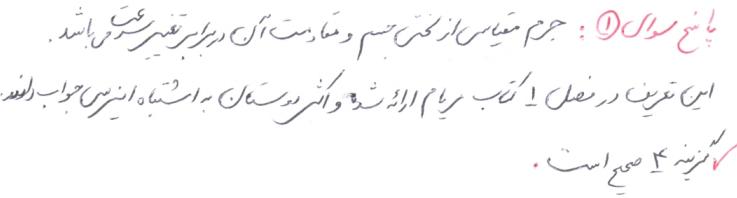 پاسخ سوال ①: جرم مقیاسی از لختی جسم و مقاومت آن در برابر تغییر سرعت می باشد.
این تعریف در فصل 1 کتاب مریام ارائه شده و اکثر دوستان به اشتباه اینرسی جواب دادند.
گزینه 4 صحیح است.